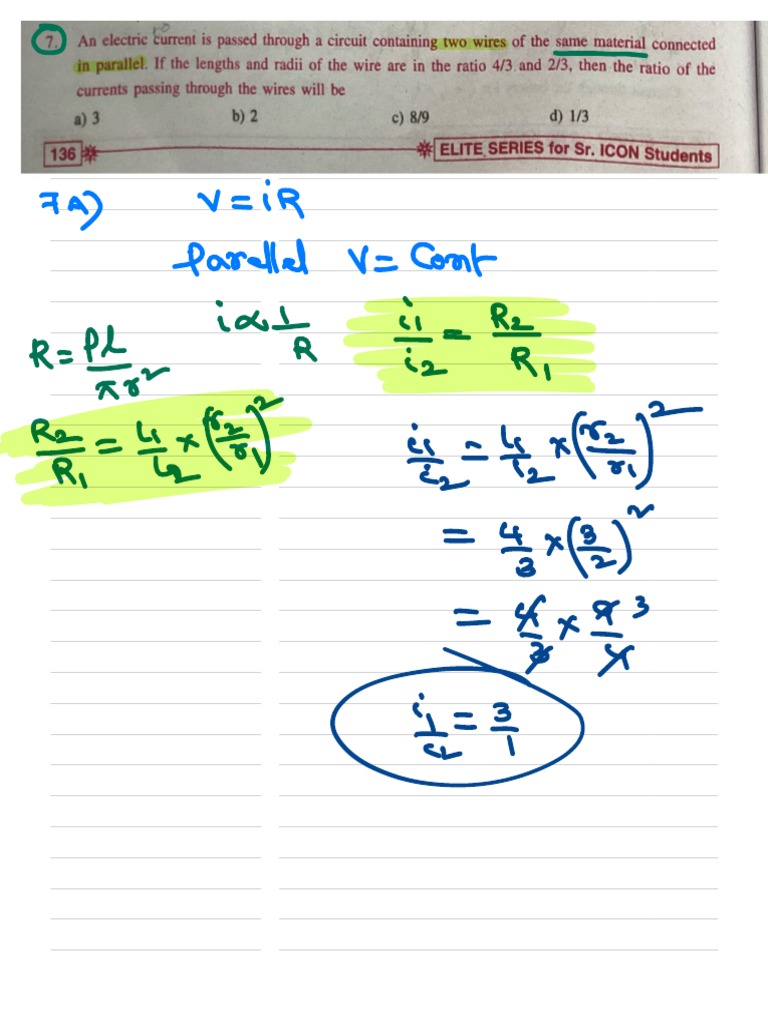 7. An electric current is passed through a circuit containing two wires of the same material connected
in parallel. If the lengths and radii of the wire are in the ratio 4/3 and 2/3, then the ratio of the
currents passing through the wires will be
a) 3 b) 2 c) 8/9 d) 1/3
136 ELITE SERIES for Sr. ICON Students
7A) V = iR
Parallel V = Const
i ∝ 1/R i₁/i₂ = R₂/R₁
R = ρl/πr²
R₂/R₁ = L₁/L₂ × (r₂/r₁)² i₁/i₂ = L₁/L₂ × (r₂/r₁)²
= 4/3 × (3/2)²
= 4/3 × 9/4 3
i₁/i₂ = 3/1